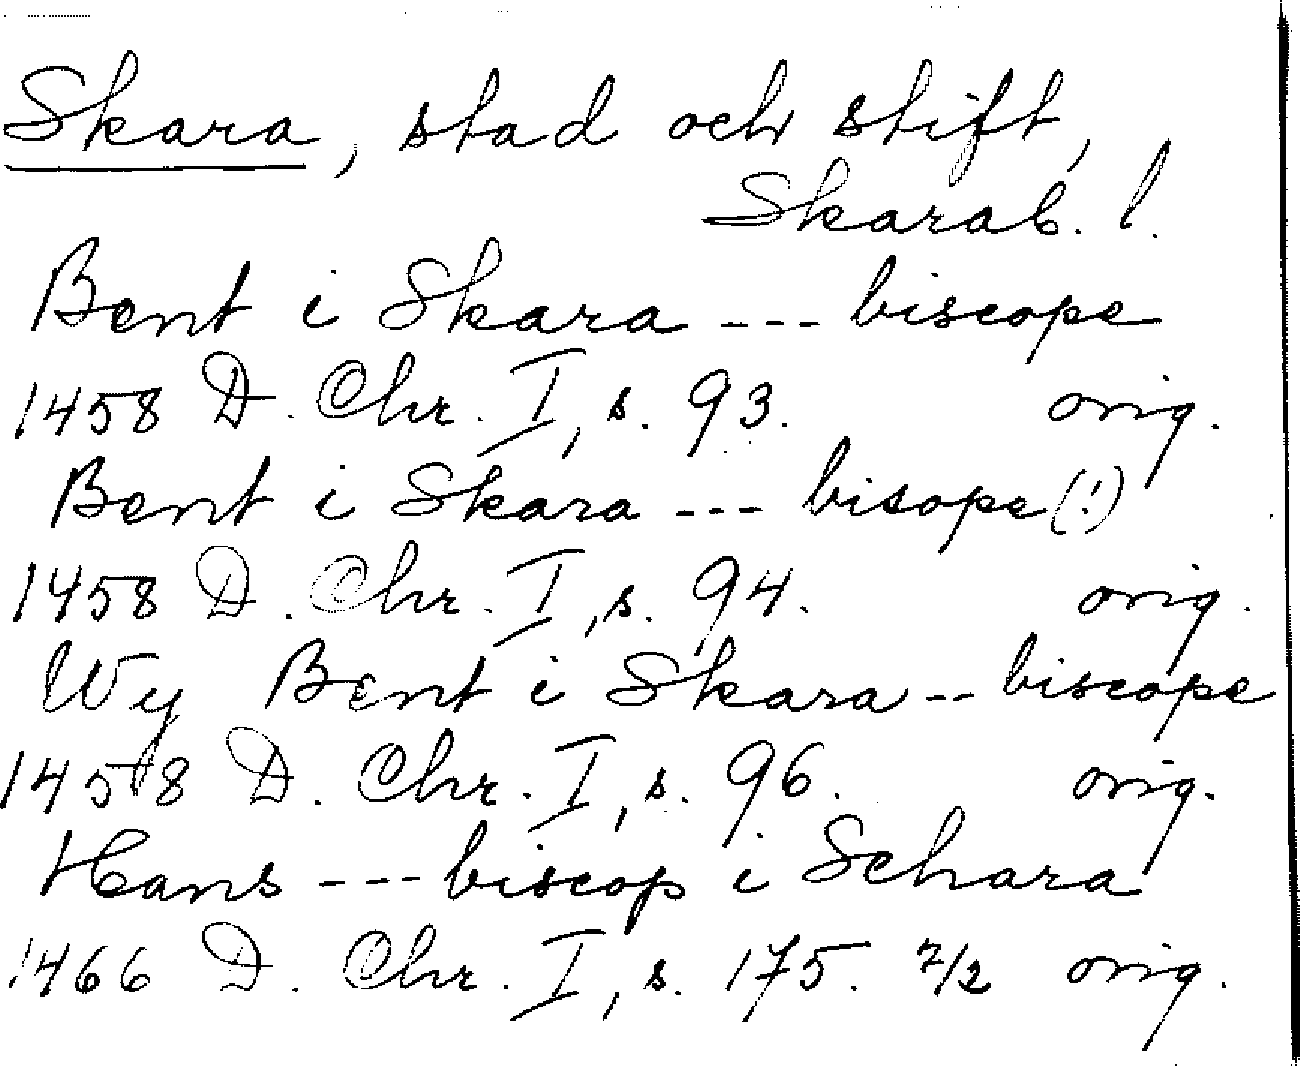 Skara, stad och stift,
Skarab. l.
Bent i Skara --- biscope
1458 D. Chr. I, s. 93. orig.
Bent i Skara --- bisope (!)
1458 D. Chr. I, s. 94. orig.
Wy Bent i Skara -- biscope
1458 D. Chr. I, s. 96. orig.
Hans --- biscop i Schara
1466 D. Chr. I, s. 175. 7/2 orig.